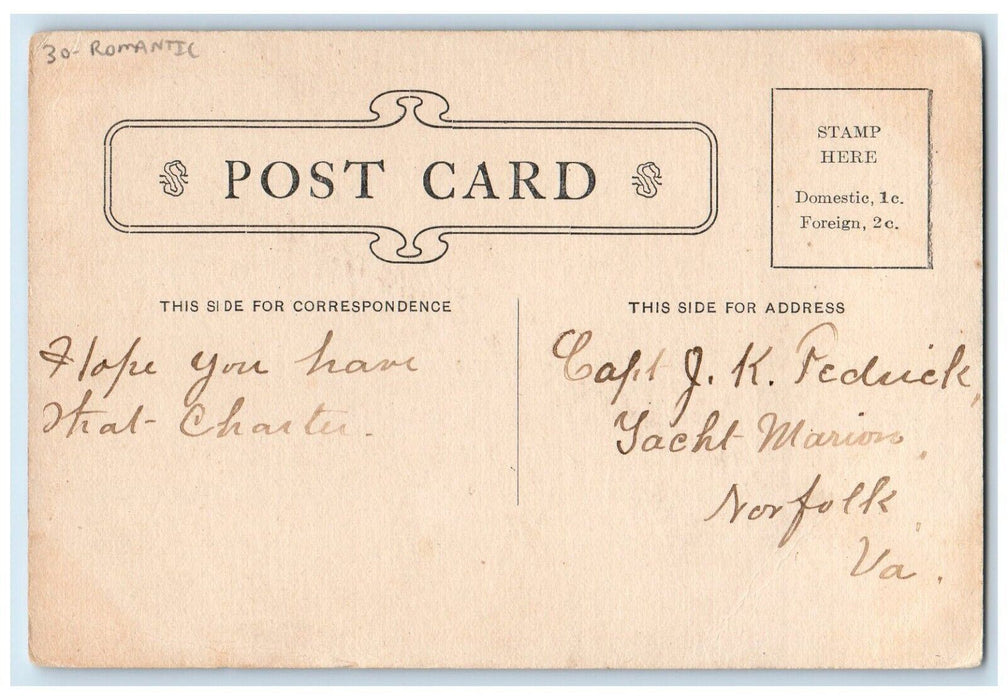 30- ROMANTIC
POST CARD
STAMP
HERE
Domestic, 1c.
Foreign, 2c.
THIS SIDE FOR CORRESPONDENCE
Hope you have
that Charter.
THIS SIDE FOR ADDRESS
Capt J. K. Fedrick,
Yacht Marion,
Norfolk,
Va.